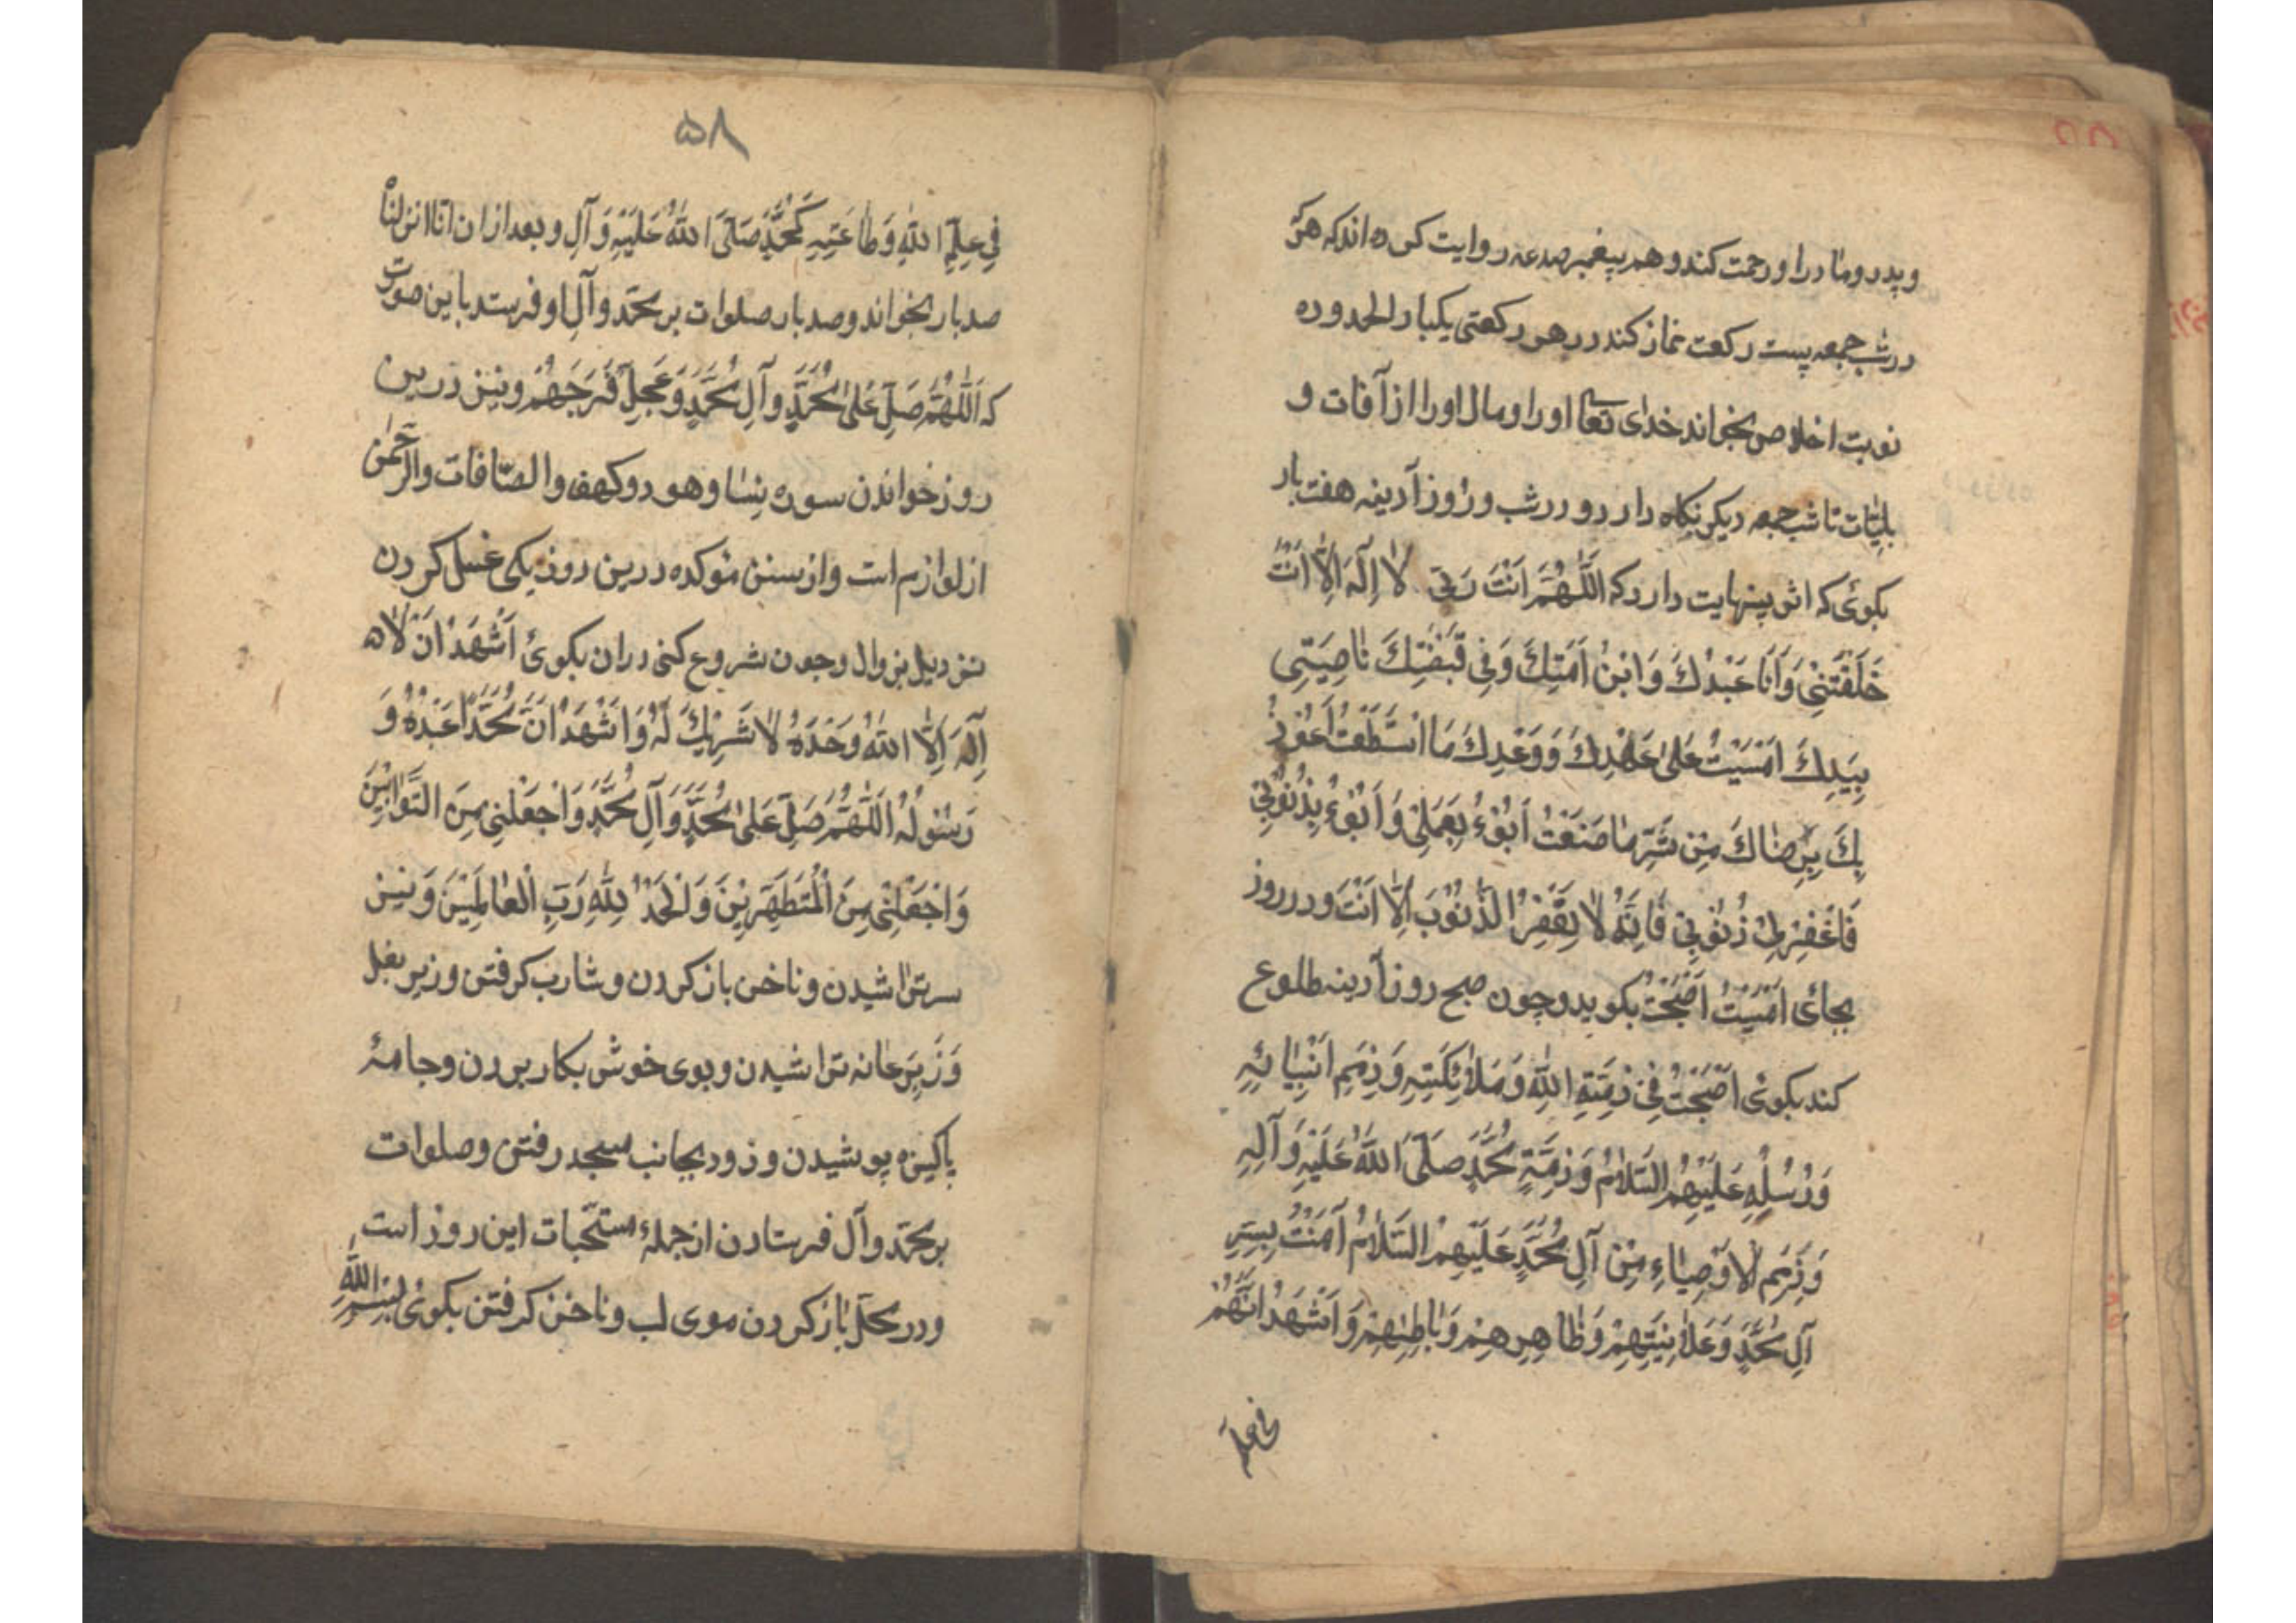 و پدر و مادر او را رحمت کند و هم پیغمبر صلعم روایت کرده‌اند که هر که
در شب جمعه بیست رکعت نماز کند در هر رکعتی یکبار الحمد و ده
نوبت اخلاص بخواند خدای تعالی او را و مال او را از آفات و
بلیّات تا شب جمعه دیکر نکاه دارد و در شب و روز آدینه هفت بار
بکوئی که اثر بینهایت دارد که اَللّٰهُمَّ اَنْتَ رَبّی لاٰ اِلٰهَ اِلّاٰ اَنْتَ
خَلَقْتَنِیْ وَ اَنَا عَبْدُكَ وَ ابْنُ اَمَتِكَ وَفِی قَبْضَتِكَ نٰاصِیَتِی
بِیَدِكَ اَمْسَیْتُ عَلیٰ عَهْدِكَ وَ وَعْدِكَ مَا اسْتَطَعْتُ اَعُوْذُ
بِكَ بِرِضٰاكَ مِنْ شَرِّ مٰا صَنَعْتُ اَبُوْءُ بِعَمَلِیْ وَ اَبُوْءُ بِذُنُوْبِیْ
فَاغْفِرْ لِیْ ذُنُوْبِیْ فَاِنَّهُ لاٰ یَغْفِرُ الذُّنُوْبَ اِلّاٰ اَنْتَ و در روز
بجائ اَمْسَیْتُ اَصْبَحْتُ بکوید و چون صبح روز آدینه طلوع
کند بکوئی اَصْبَحْتُ فِیْ ذِمَّةِ اللّٰهِ وَ مَلاٰئِكَتِهِ وَ ذِمَمِ اَنْبِیٰائِهِ
وَ رُسُلِهِ عَلَیْهِمُ السَّلاٰمُ وَ ذِمَّةِ مُحَمَّدٍ صَلَّی اللّٰهُ عَلَیْهِ وَ آلِهِ
وَ ذِمَمِ الاَوْصِیٰاءِ مِنْ آلِ مُحَمَّدٍ عَلَیْهِمُ السَّلاٰمُ آمَنْتُ بِسِرِّ
آلِ مُحَمَّدٍ وَ عَلاٰنِیَتِهِمْ وَ ظٰاهِرِهِمْ وَ بٰاطِنِهِمْ وَ اَشْهَدُ اَنَّهُمْ
فی علم
۵۸
فِی عِلْمِ اللّٰهِ وَ طٰاعَتِهِ كَمُحَمَّدٍ صَلَّی اللّٰهُ عَلَیْهِ وَ آلِهِ و بعد از ان انا انزلناه
صد بار بخواند و صد بار صلوات بر محمّد و آل او فرستد باین صورت
که اَللّٰهُمَّ صَلِّ عَلیٰ مُحَمَّدٍ وَ آلِ مُحَمَّدٍ وَ عَجِّلْ فَرَجَهُمْ و نیز درین
روز خواندن سوره نسا و هود و کهف و الصّافات و الرّحمٰن
از لوازم است و از سنن مؤکده درین روز یکی غسل کردن
نزدیک بزوال و چون شروع کنی در ان بکوئ اَشْهَدُ اَنْ لاٰ
اِلٰهَ اِلَّا اللّٰهُ وَحْدَهُ لاٰ شَرِیْكَ لَهُ وَ اَشْهَدُ اَنَّ مُحَمَّدًا عَبْدُهُ وَ
رَسُوْلُهُ اَللّٰهُمَّ صَلِّ عَلیٰ مُحَمَّدٍ وَ آلِ مُحَمَّدٍ وَ اجْعَلْنِی مِنَ التَّوّٰابِیْنَ
وَ اجْعَلْنِی مِنَ الْمُتَطَهِّرِیْنَ وَ الْحَمْدُ لِلّٰهِ رَبِّ الْعٰالَمِیْنَ وَ نیز
سر تراشیدن و ناخن باز کردن و شارب کرفتن و زیر بغل
وَ زَیرِ عانه تراشیدن و بوی خوش بکار بردن و جامۀ
پاکیزه پوشیدن و زود بجانب مسجد رفتن و صلوات
بر محمّد و آل فرستادن از جملۀ مستحّبات این روز است
و در محلّ باز کردن موی لب و ناخن کرفتن بکوئ بِسْمِ اللّٰهِ